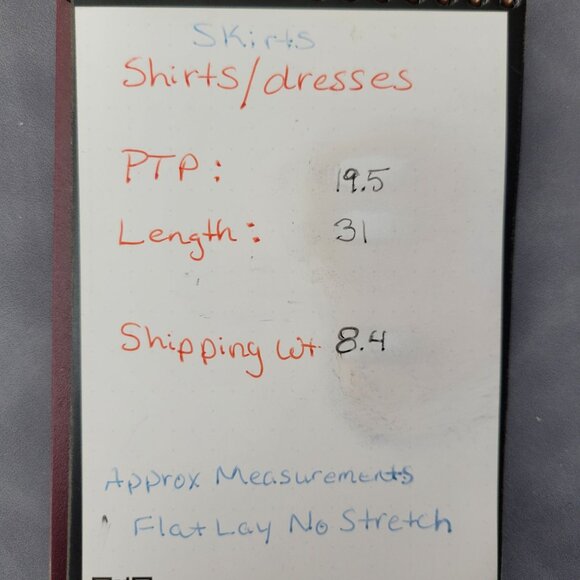 Skirts
Shirts/dresses
PTP: 19.5
Length: 31
Shipping Wt 8.4
Approx Measurements
Flat Lay No Stretch